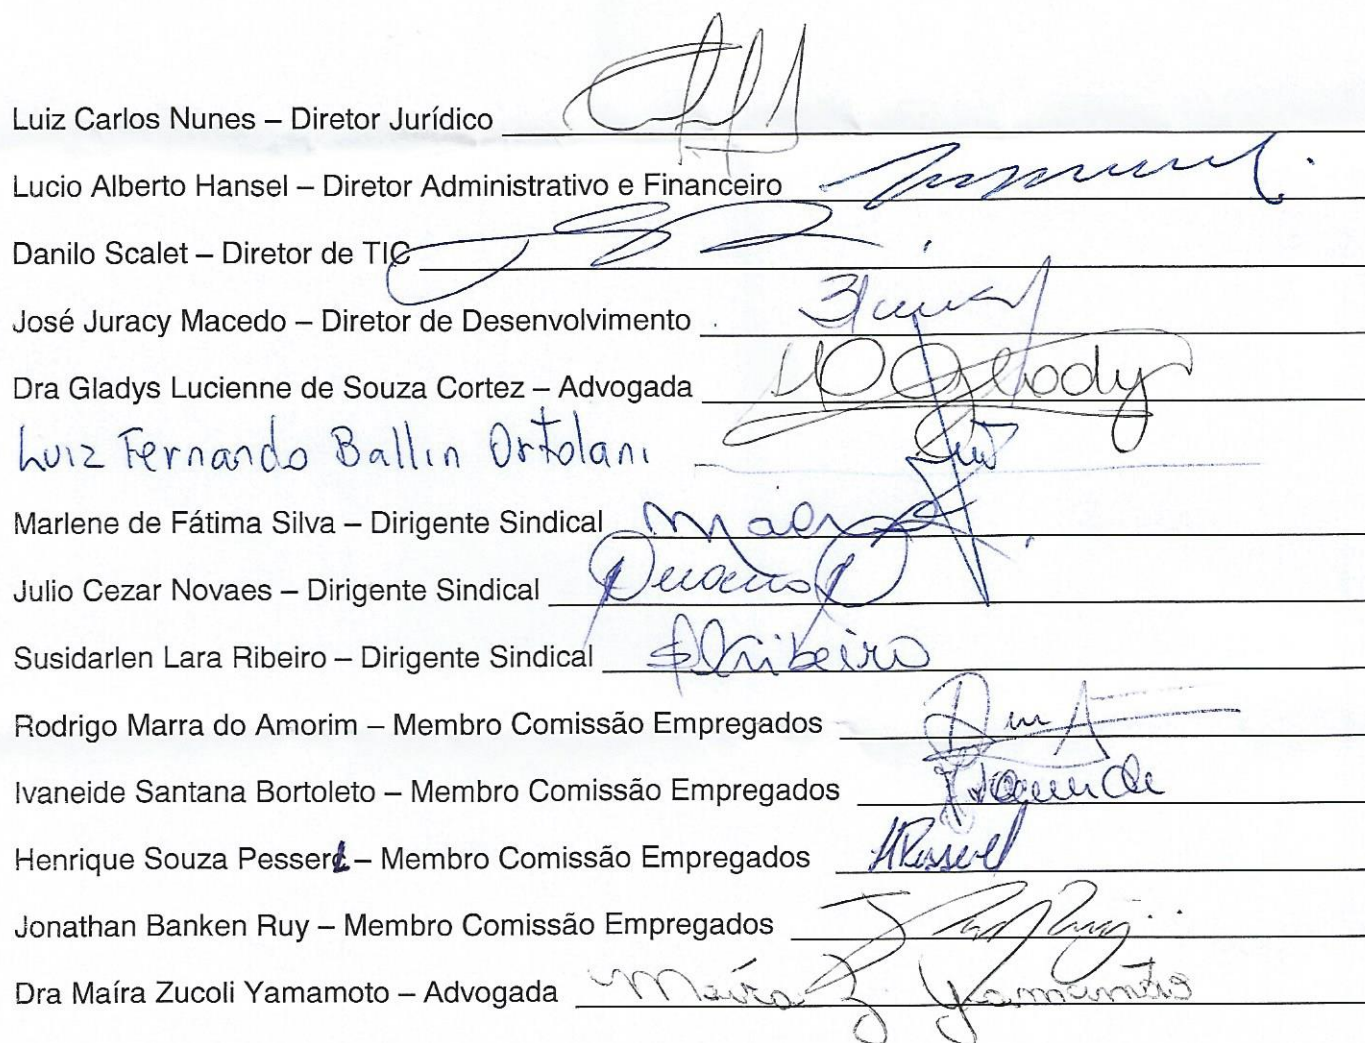 Luiz Carlos Nunes – Diretor Jurídico
Lucio Alberto Hansel – Diretor Administrativo e Financeiro
Danilo Scalet – Diretor de TIC
José Juracy Macedo – Diretor de Desenvolvimento
Dra Gladys Lucienne de Souza Cortez – Advogada
Luiz Fernando Ballin Ortolani
Marlene de Fátima Silva – Dirigente Sindical
Julio Cezar Novaes – Dirigente Sindical
Susidarlen Lara Ribeiro – Dirigente Sindical SLRibeiro
Rodrigo Marra do Amorim – Membro Comissão Empregados
Ivaneide Santana Bortoleto – Membro Comissão Empregados
Henrique Souza Pesserl – Membro Comissão Empregados
Jonathan Banken Ruy – Membro Comissão Empregados
Dra Maíra Zucoli Yamamoto – Advogada Maíra Z. Yamamoto